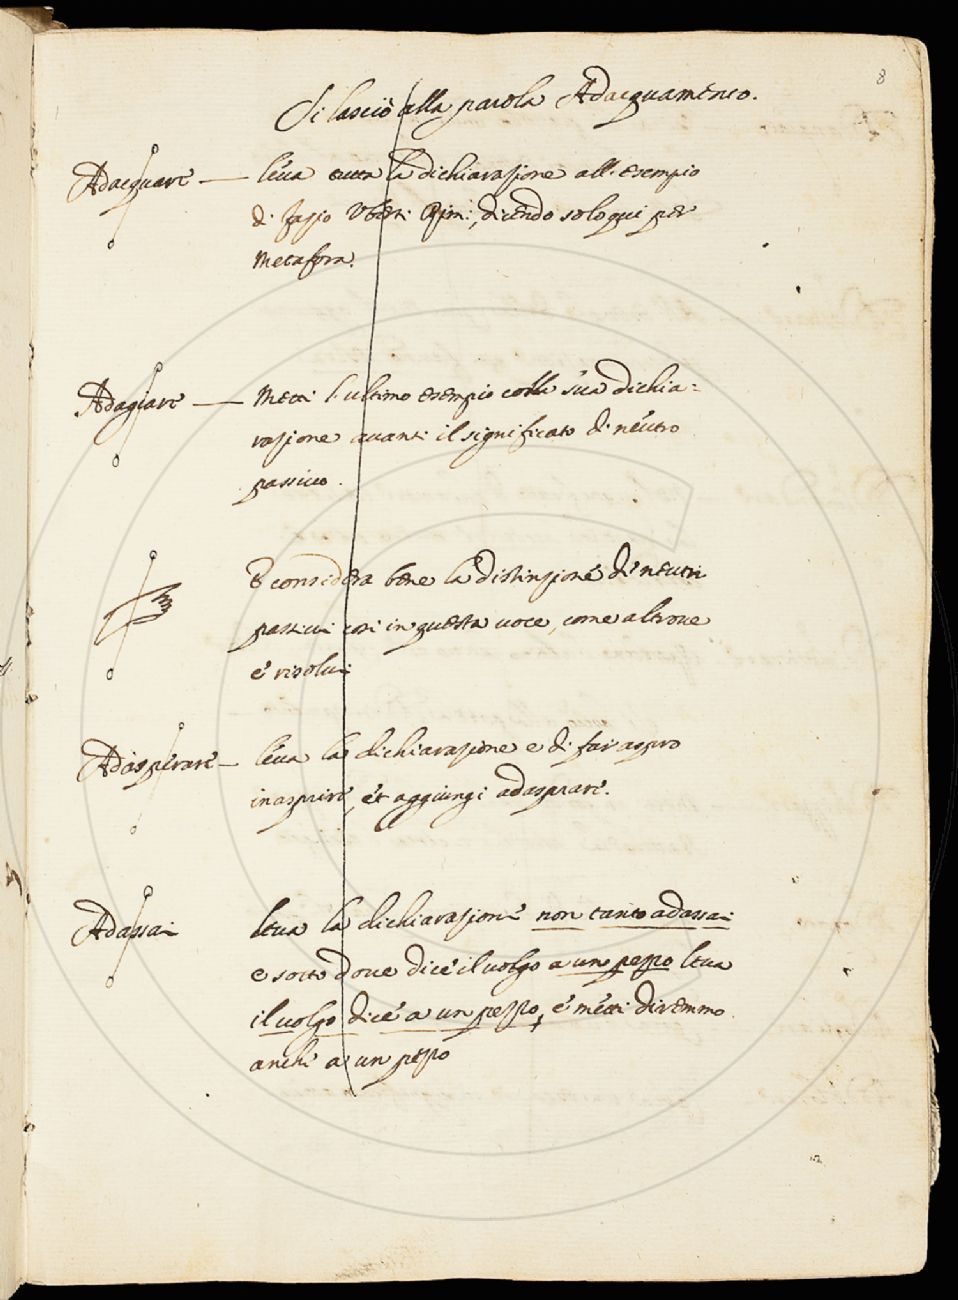 8
Si lasciò alla parola Adacquamento.
Adacquare — leua tutta la dichiarazione all. esempio
di Fazio Vberti Rim:, dicendo solo qui per
Metafora.
Adagiare — Metti l'ultimo esempio colla sua dichia=
razione auanti il significato di neutro
passiuo.
E considera bene la distinzione de' neutri
passiui cosi in questa uoce, come altroue
e risolui
Adasperare — leua la dichiarazione e di far aspro
inasprire, et aggiungi adasprare.
Adassai leua la dichiarazione non tanto adassai
e sotto doue dice il uolgo a un pezzo leua
il uolgo dice a un pezzo, e metti diremmo
anche a un pezzo